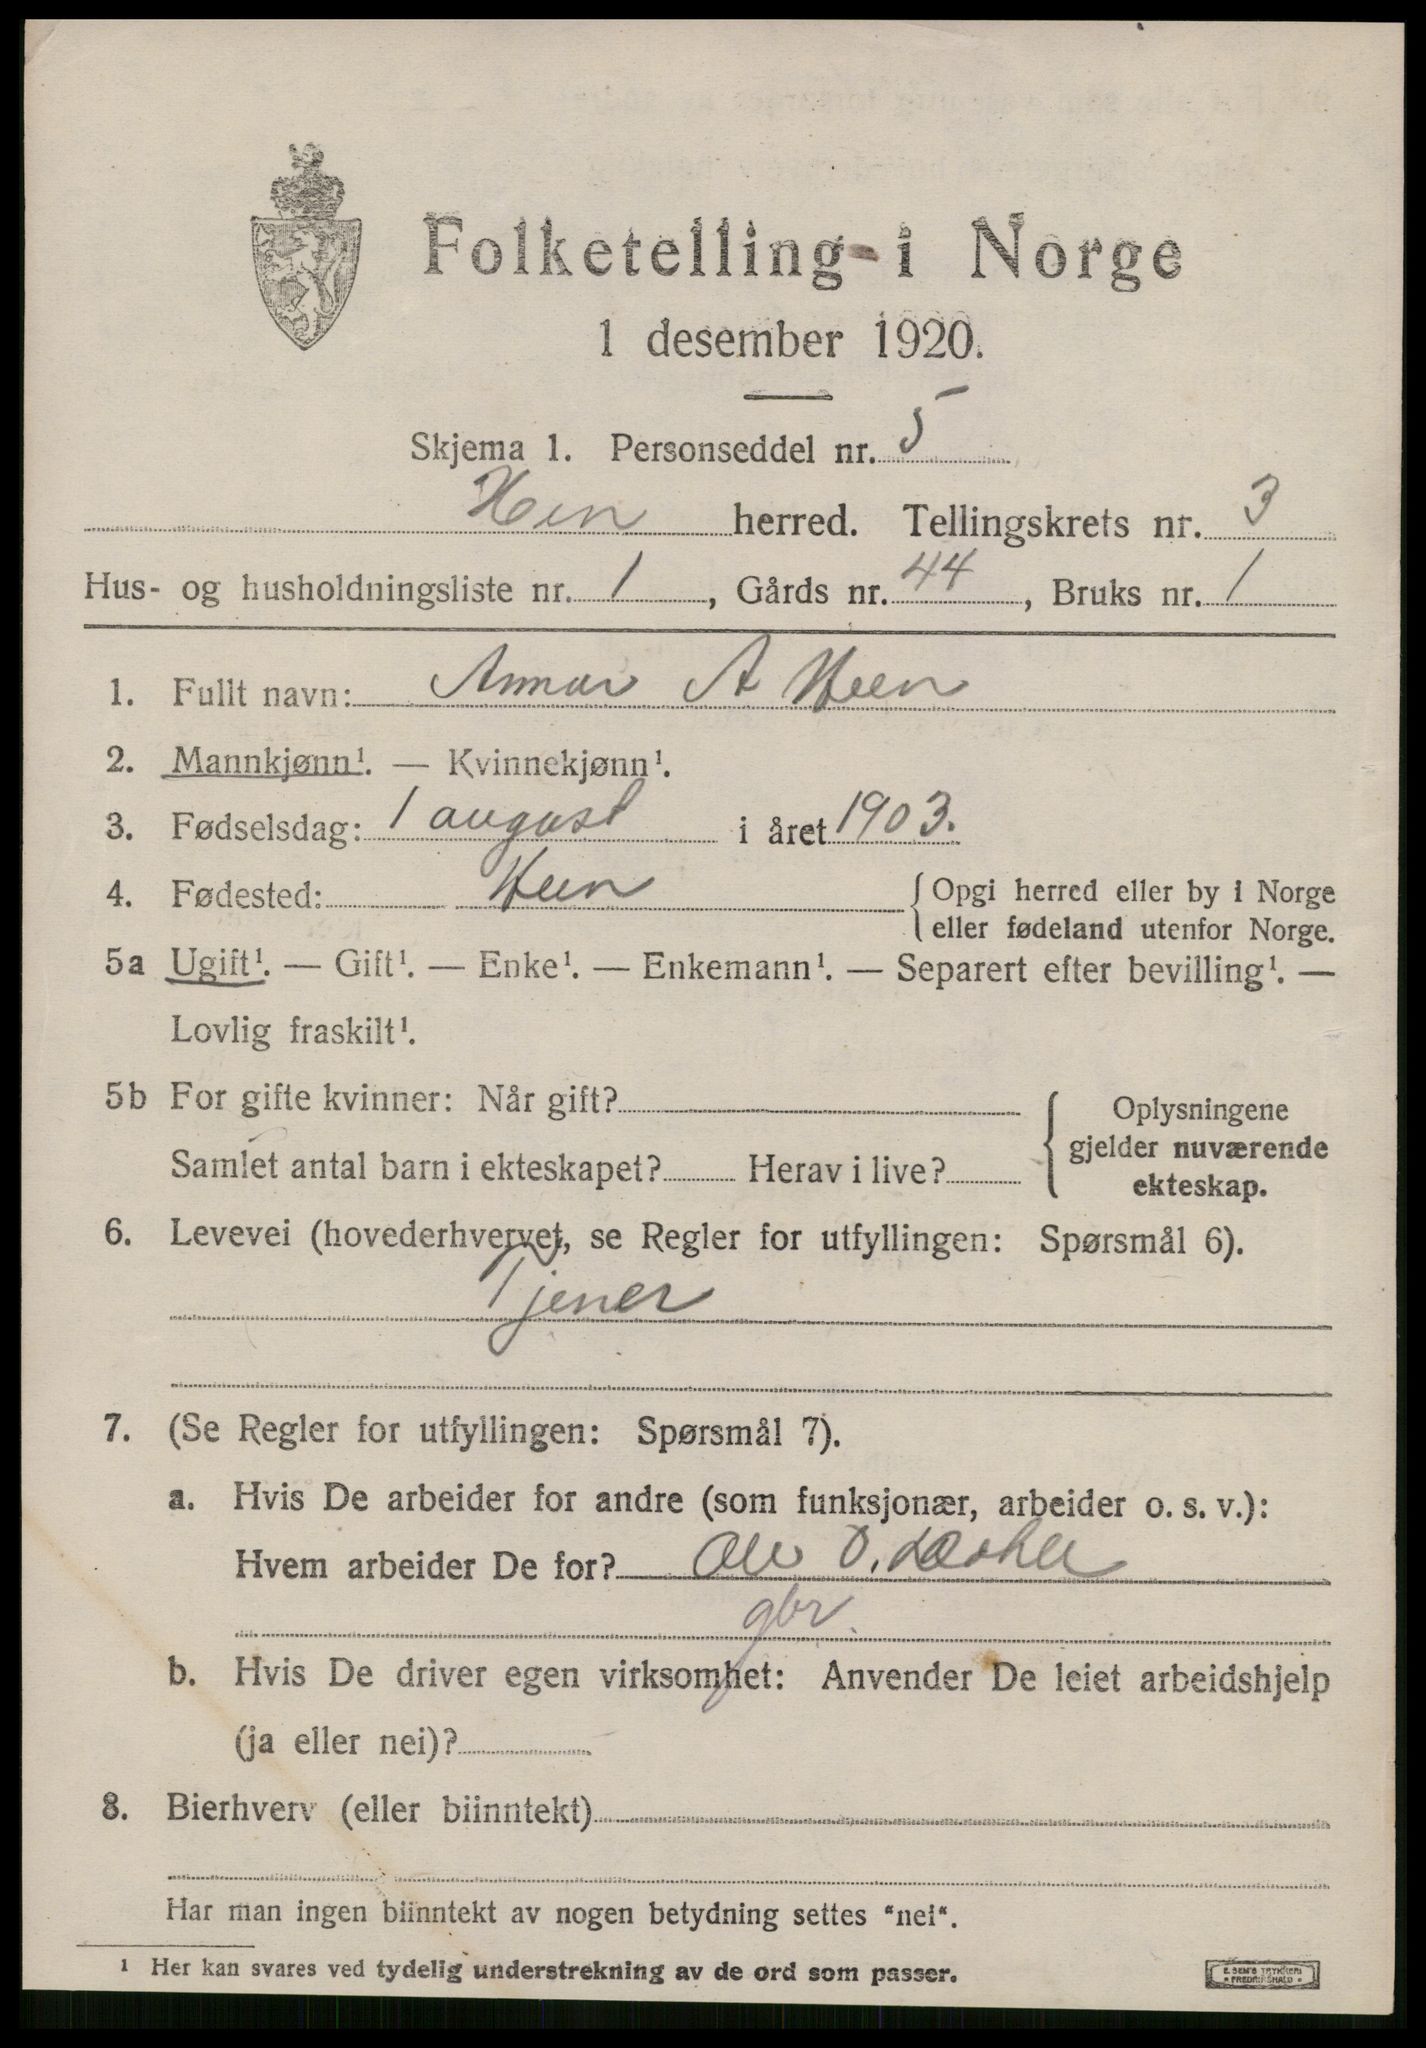 Folketelling i Norge
1 desember 1920.
Skjema 1. Personseddel nr. 5
Hen herred. Tellingskrets nr. 3
Hus- og husholdningsliste nr. 1, Gårds nr. 44, Bruks nr. 1
1. Fullt navn: A Heen
2. Mannkjønn¹. — Kvinnekjønn¹.
3. Fødselsdag: 1 august i året 1903.
4. Fødested: Heen { Opgi herred eller by i Norge
eller fødeland utenfor Norge.
5a Ugift¹. — Gift¹. — Enke¹. — Enkemann¹. — Separert efter bevilling¹. —
Lovlig fraskilt¹.
5b For gifte kvinner: Når gift?
Samlet antal barn i ekteskapet? Herav i live?
{ Oplysningene
gjelder nuværende
ekteskap.
6. Levevei (hovederhvervet, se Regler for utfyllingen: Spørsmål 6).
Tjener
7. (Se Regler for utfyllingen: Spørsmål 7).
a. Hvis De arbeider for andre (som funksjonær, arbeider o. s. v.):
Hvem arbeider De for? Ole O.
gbr.
b. Hvis De driver egen virksomhet: Anvender De leiet arbeidshjelp
(ja eller nei)?
8. Bierhverv (eller biinntekt)
Har man ingen biinntekt av nogen betydning settes "nei".
¹ Her kan svares ved tydelig understrekning av de ord som passer.
E. SEM'S TRYKKERI
FREDRIKSHALD